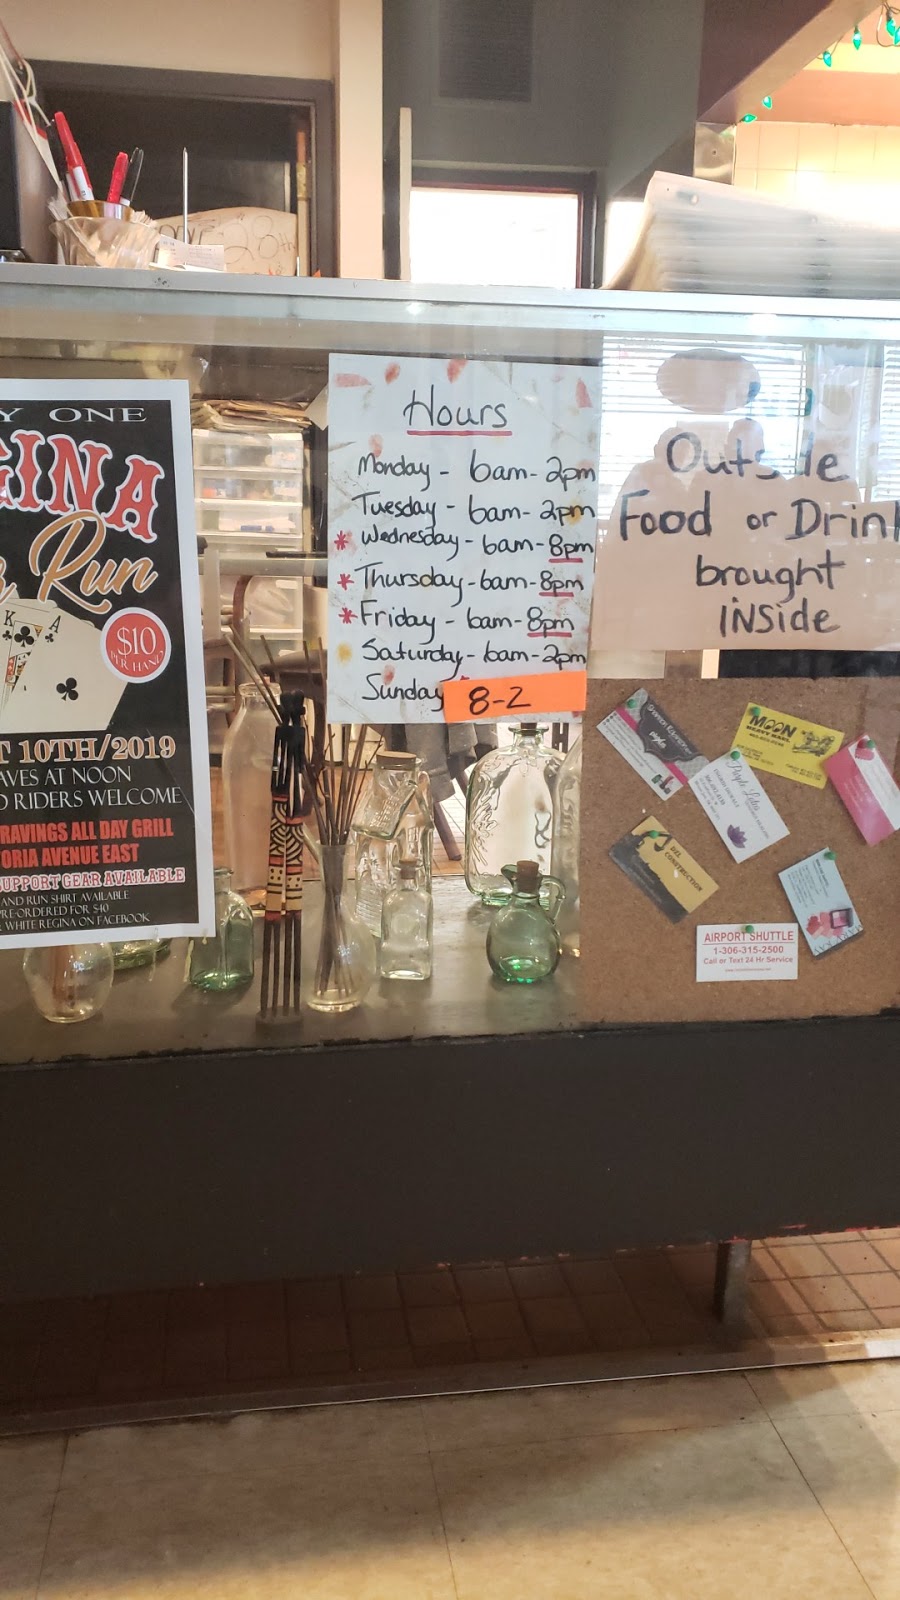 Y ONE
GINA
Run
K
A
$10
PER HAND
T 10TH/2019
AVES AT NOON
D RIDERS WELCOME
RAVINGS ALL DAY GRILL
ORIA AVENUE EAST
SUPPORT GEAR AVAILABLE
AND RUN SHIRT AVAILABLE
PRE-ORDERED FOR $40
WHITE REGINA ON FACEBOOK
Hours
Monday - 6am-2pm
Tuesday - 6am-2pm
* Wednesday - 6am-8pm
* Thursday - 6am-8pm
* Friday - 6am-8pm
Saturday - 6am-2pm
Sunday 8-2
Outside
Food or Drink
brought
INSide
MOON
HEAVY HAUL
Purple Lotus
DZL
CONSTRUCTION
AIRPORT SHUTTLE
1-306-315-2500
Call or Text 24 Hr Service